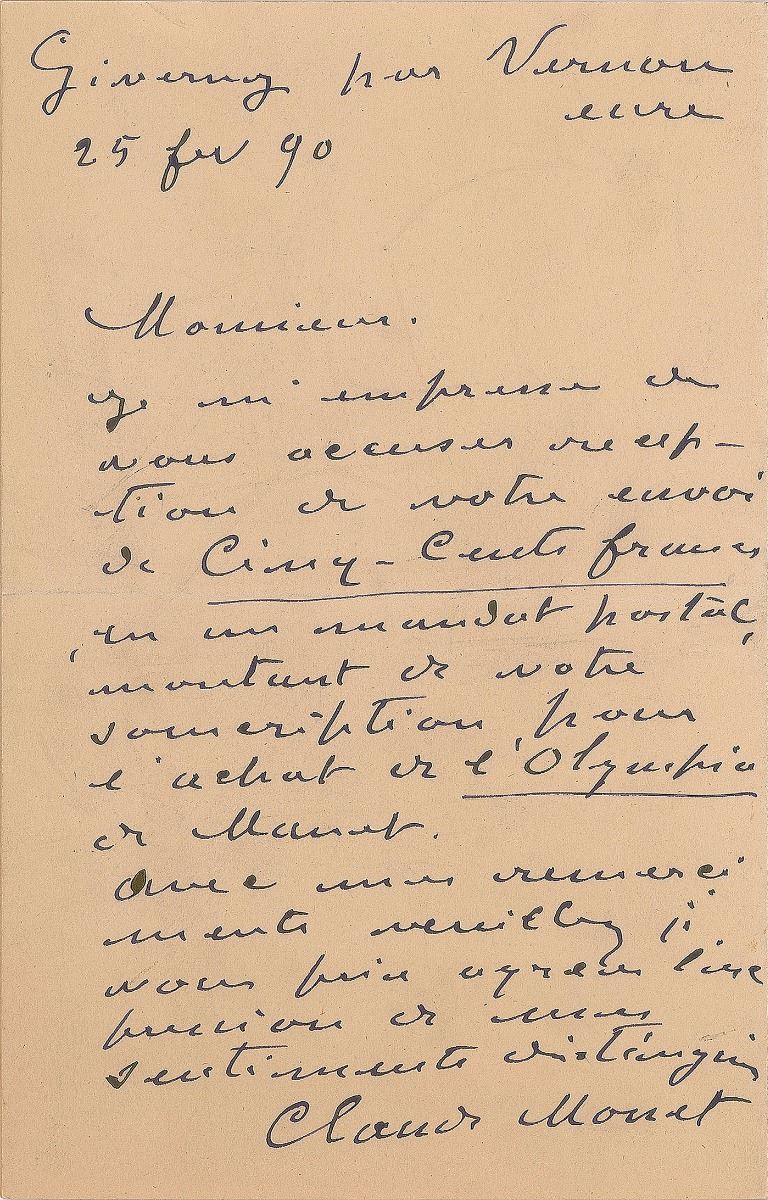 Giverny par Vernon
eure
25 fev 90
Monsieur.
Je m'empresse de
vous accuser recep-
tion de votre envoi
de Cinq-Cents francs
en un mandat postal,
montant de votre
souscription pour
l'achat de l'Olympia
de Manet.
Avec mes remerci
ments veuillez je
vous prie agréer l'ex
pression de mes
sentiments distingués
Claude Monet